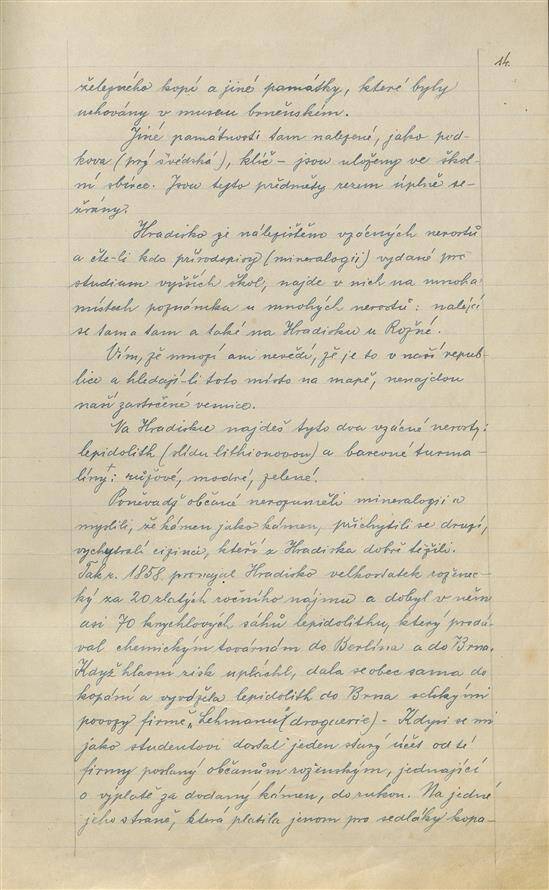 14.
železného kopí a jiné památky, které byly
uchovány v museu brněnském.
Jiné památnosti tam nalezené, jako pod-
kova (prý švédská), klíč – jsou uloženy ve škol-
ní sbírce. Jsou tyto předměty rezem úplně se-
žrány.
Hradisko je nálezištěm vzácných nerostů
a čte-li kdo přírodopisy (mineralogii) vydané pro
studium vyšších škol, najde v nich na mnoha
místech poznámku u mnohých nerostů: nalézá
se tam a tam a také na Hradisku u Rožné.
Vím, že mnozí ani nevědí, že je to v naší repub-
lice a hledají-li toto místo na mapě, nenajdou
naší zastrčené vesnice.
Na Hradisku najdeš tyto dva vzácné nerosty:
lepidolith (slídu lithionovou) a barevné turma-
líny: růžové, modré, zelené.
Poněvadž občané nerozuměli mineralogii a
myslili, že kámen jako kámen, přichytili se drazí,
vychytralí cizinci, kteří z Hradiska dobře těžili.
Tak r. 1858. pronajal Hradisko velkostatek rožnec-
ký za 20 zlatých ročního nájmu a dobyl v něm
asi 70 krychlových sáhů lepidolithu, který prodá-
val chemickým továrnám do Berlína a do Brna.
Když hlavní zisk upláchl, dala se obec sama do
kopání a vyvážela lepidolith do Brna selskými
povozy firmě „Lehmann“ (droguerie) – Kdysi se mi
jako studentovi dostal jeden starý účet od té
firmy poslaný občanům roženským, jednající
o výplatě za dodaný kámen, do rukou. Na jedné
jeho straně, která platila jenom pro sedláky kopa-